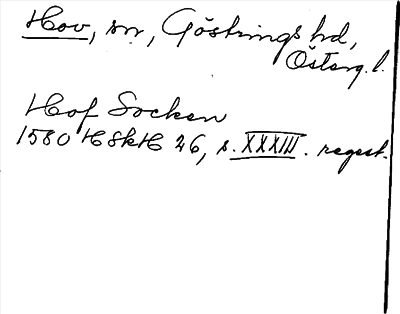 Hov, sn, Göstrings hd,
Österg. l.
Hof Socken
1580 HSkH 26, s. XXXIII. regest.